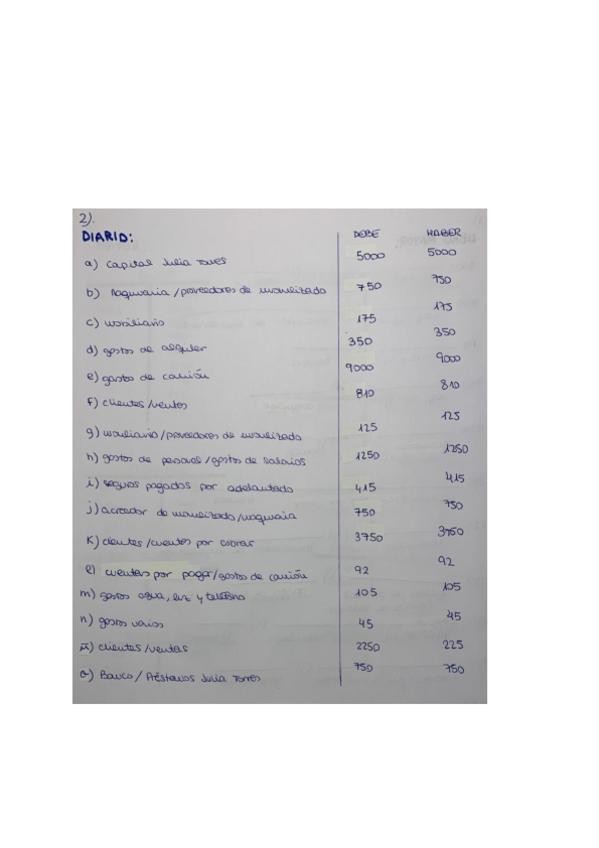 2).
DIARIO: DEBE HABER
a) Capital Julia Torres 5000 5000
b) Maquinaria / proveedores de inmovilizado 750 750
c) mobiliario 175 175
d) gastos de alquiler 350 350
e) gastos de camión 9000 9000
f) clientes / ventas 810 810
g) mobiliario / proveedores de inmovilizado 125 125
h) gastos de personal / gastos de salarios 1250 1250
i) seguros pagados por adelantado 415 415
j) acreedor de inmovilizado / maquinaria 750 750
K) clientes / cuentas por cobrar 3750 3750
l) cuentas por pagar / gastos de camión 92 92
m) gastos agua, luz y teléfono 105 105
n) gastos varios 45 45
ñ) clientes / ventas 2250 225
o) Banco / Préstamos Julia Torres 750 750